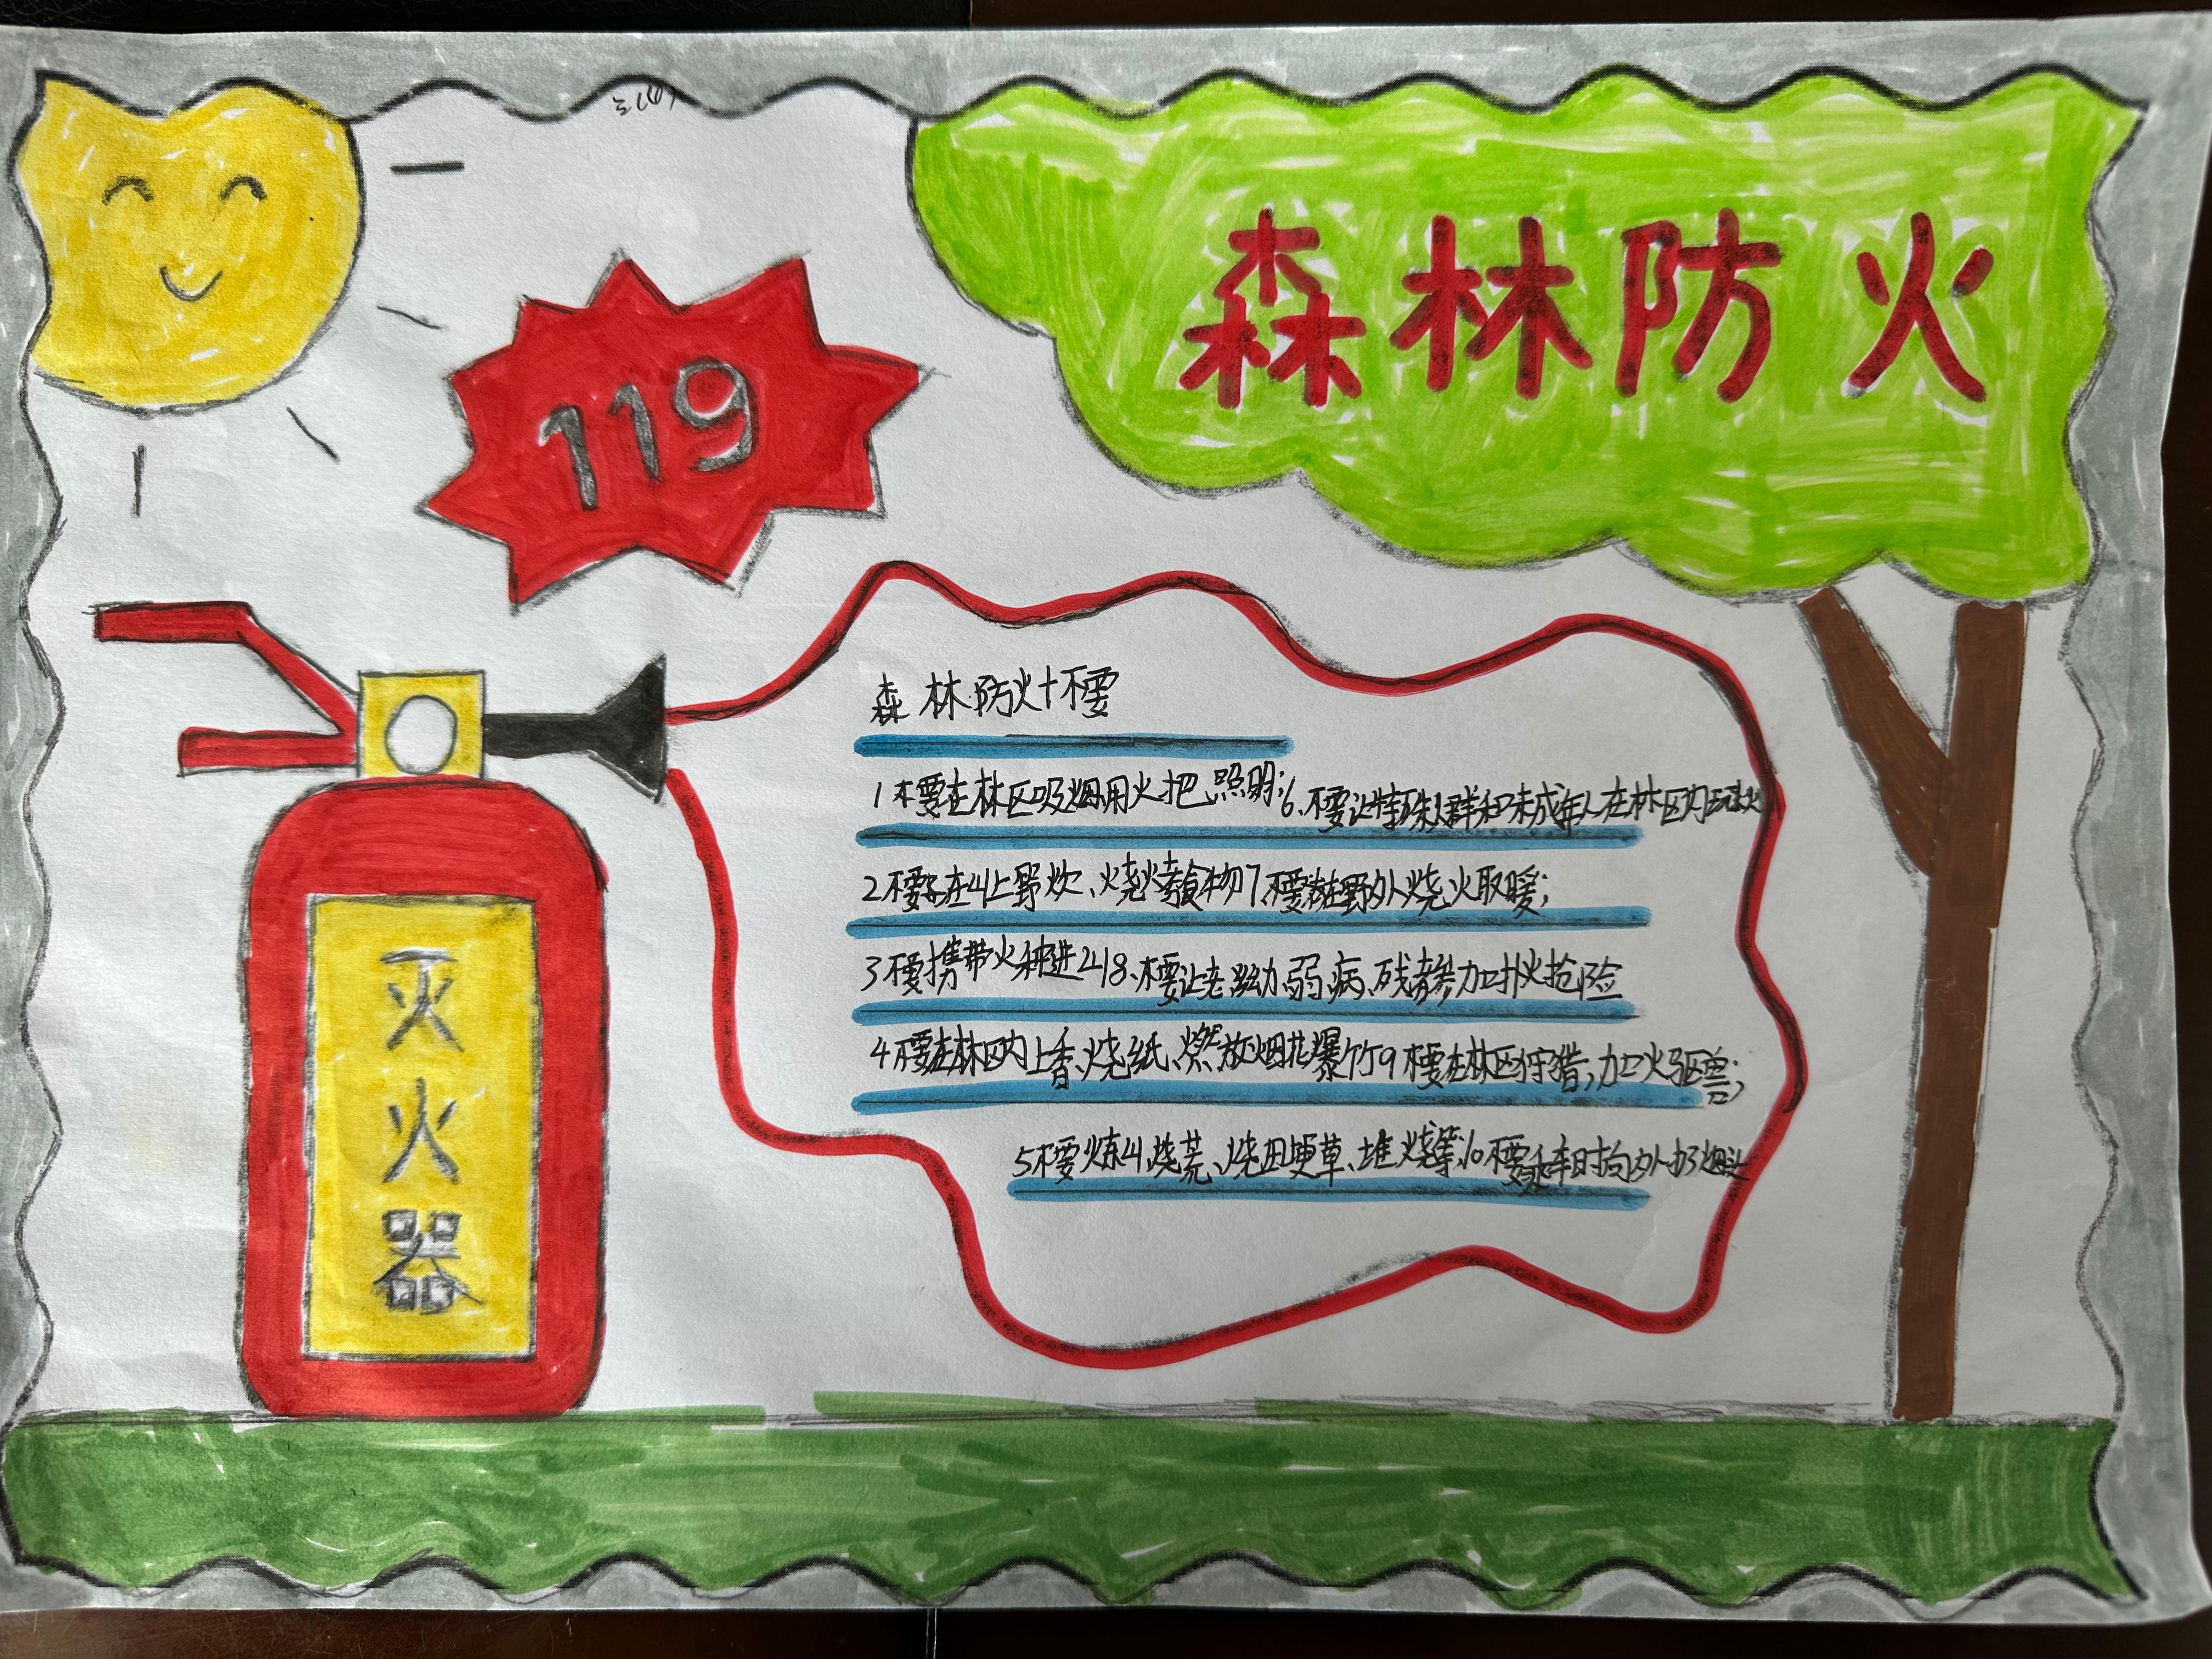 森林防火
119
灭火器
森林防火十不要
1不要在林区吸烟用火把照明;6.不要让特殊人群和未成年人在林区内玩火
2不要在山上野炊、烧烤食物7.不要在野外烧火取暖;
3不要携带火种进山8.不要让老、幼、弱、病、残者参加扑火抢险
4不要在林区内上香、烧纸、燃放烟花爆竹9不要在林区狩猎,加火驱兽;
5不要炼山、烧荒、烧田埂草、堆烧等;10不要乘车时向外扔烟头